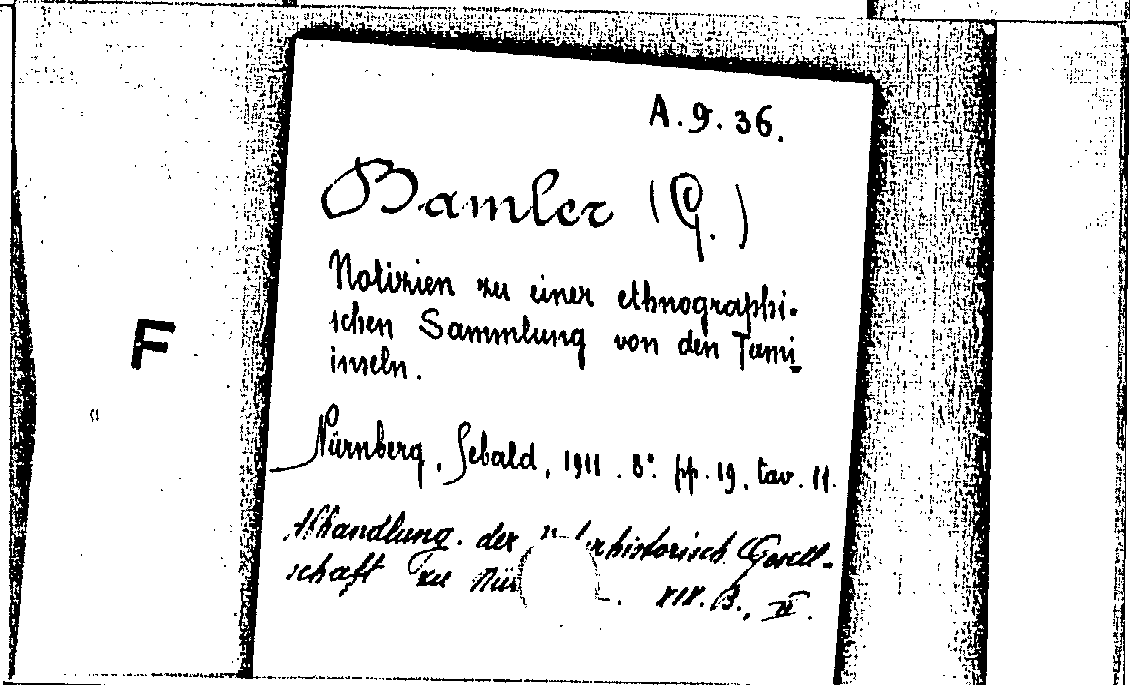 A.9.36.
Bamler (G.)
Notizien zu einer ethnographi-
schen Sammlung von den Tami
inseln.
F
Nürnberg, Sebald, 1911. 8° pp. 19, tav. 11.
Abhandlung. der Gesell-
schaft zu XIX. B., II.